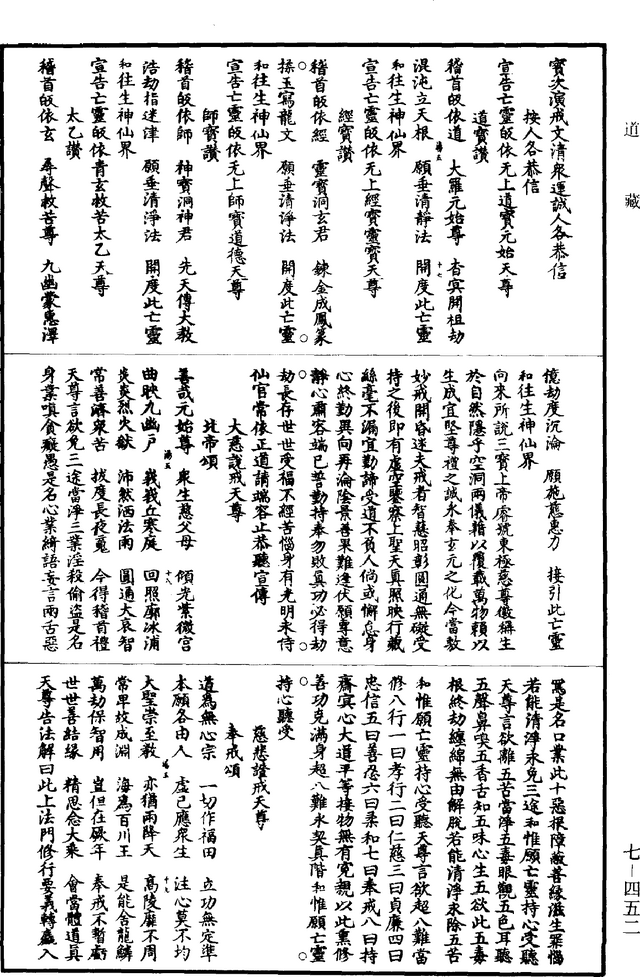 道藏
寶次演戒文清衆運誠人各恭信
按人各恭信
宣告亡靈皈依无上道寶元始天尊
道寶讚
稽首皈依道　大羅元始尊　杳冥開祖劫
混沌立天根　願垂清靜法　開度此亡靈
和往生神仙界
宣告亡靈皈依无上經寶靈寶天尊
經寶讚
稽首皈依經　靈寶洞玄君　鍊金成鳳篆
搽玉寫龍文　願垂清淨法　開度此亡靈
和往生神仙界
宣告亡靈皈依无上師寶道德天尊
師寶讚
稽首皈依師　神寶洞神君　先天傳大教
浩劫指迷津　願垂清淨法　開度此亡靈
和往生神仙界
宣告亡靈皈依青玄救苦太乙天尊
太乙讚
稽首皈依玄　尋聲救苦尊　九幽蒙惠澤
億劫度沉淪　願施慈惠力　接引此亡靈
和往生神仙界
向來所說三寶上帝虛號東極慈尊徽稱生
於自然隱乎空洞兩儀藉以覆載萬物賴以
生成宜堅尊禮之誠永奉玄元之化今當敷
妙戒開昏迷夫戒者智慧昭彰圓通無礙受
持之後即有虛空鑒察上聖天真照映行藏
絲毫不漏宜勤諦受道不負人倘或懈怠身
心終勤異向再淪陰景善果難逢伏願尊意
靜心肅容端己普勤持奉勿敗真功必得劫
劫長存世世受福不經苦惱身有光明来侍
仙官當依正道請端容止恭聽宣傳
大慈說戒天尊
北帝頌
善哉元始尊　衆生慈父母　傾光紫微宮
曲映九幽戶　峩峩丘寒庭　回照廓冰浦
炎炎烈火獄　沛然洒法雨　圓通大哀智
常善濟衆苦　拔度長夜鬼　令得稽首禮
天尊言欲免三途當淨三業淫殺偷盜是名
身業嗔貪癡愚是名心業綺語妄言兩舌惡
罵是名口業此十惡根障蔽善緣滋生罪惱
若能清淨永免三途和惟願亡靈持心受聽
天尊言欲離五苦當淨五毒眼觀五色耳聽
五聲鼻嗅五香舌知五味心生五欲此五毒
根終劫纏綿無由解脫若能清淨永除五苦
和惟願亡靈持心受聽天尊言欲超八難當
修八行一曰孝行二曰仁慈三曰貞廉四曰
忠信五曰善忍六曰柔和七曰奉戒八曰持
齋冥心大道平等接物無有冤親以此熏修
善功克滿身超八難永契真階和惟願亡靈
持心聽受
慈悲證戒天尊
奉戒頌
道爲無心宗　一切作福田　立功無定準
本願各由人　虛己應衆生　注心莫不均
大聖崇至敎　亦猶雨降天　高陵靡不周
常卑故成淵　海爲百川王　是能舍龍鱗
萬劫保智用　豈但在厥年　奉戒不暫虧
世世善結緣　精思念大乘　會當體道真
天尊告法解曰此上法門修行要義轉齋入
七—四五二